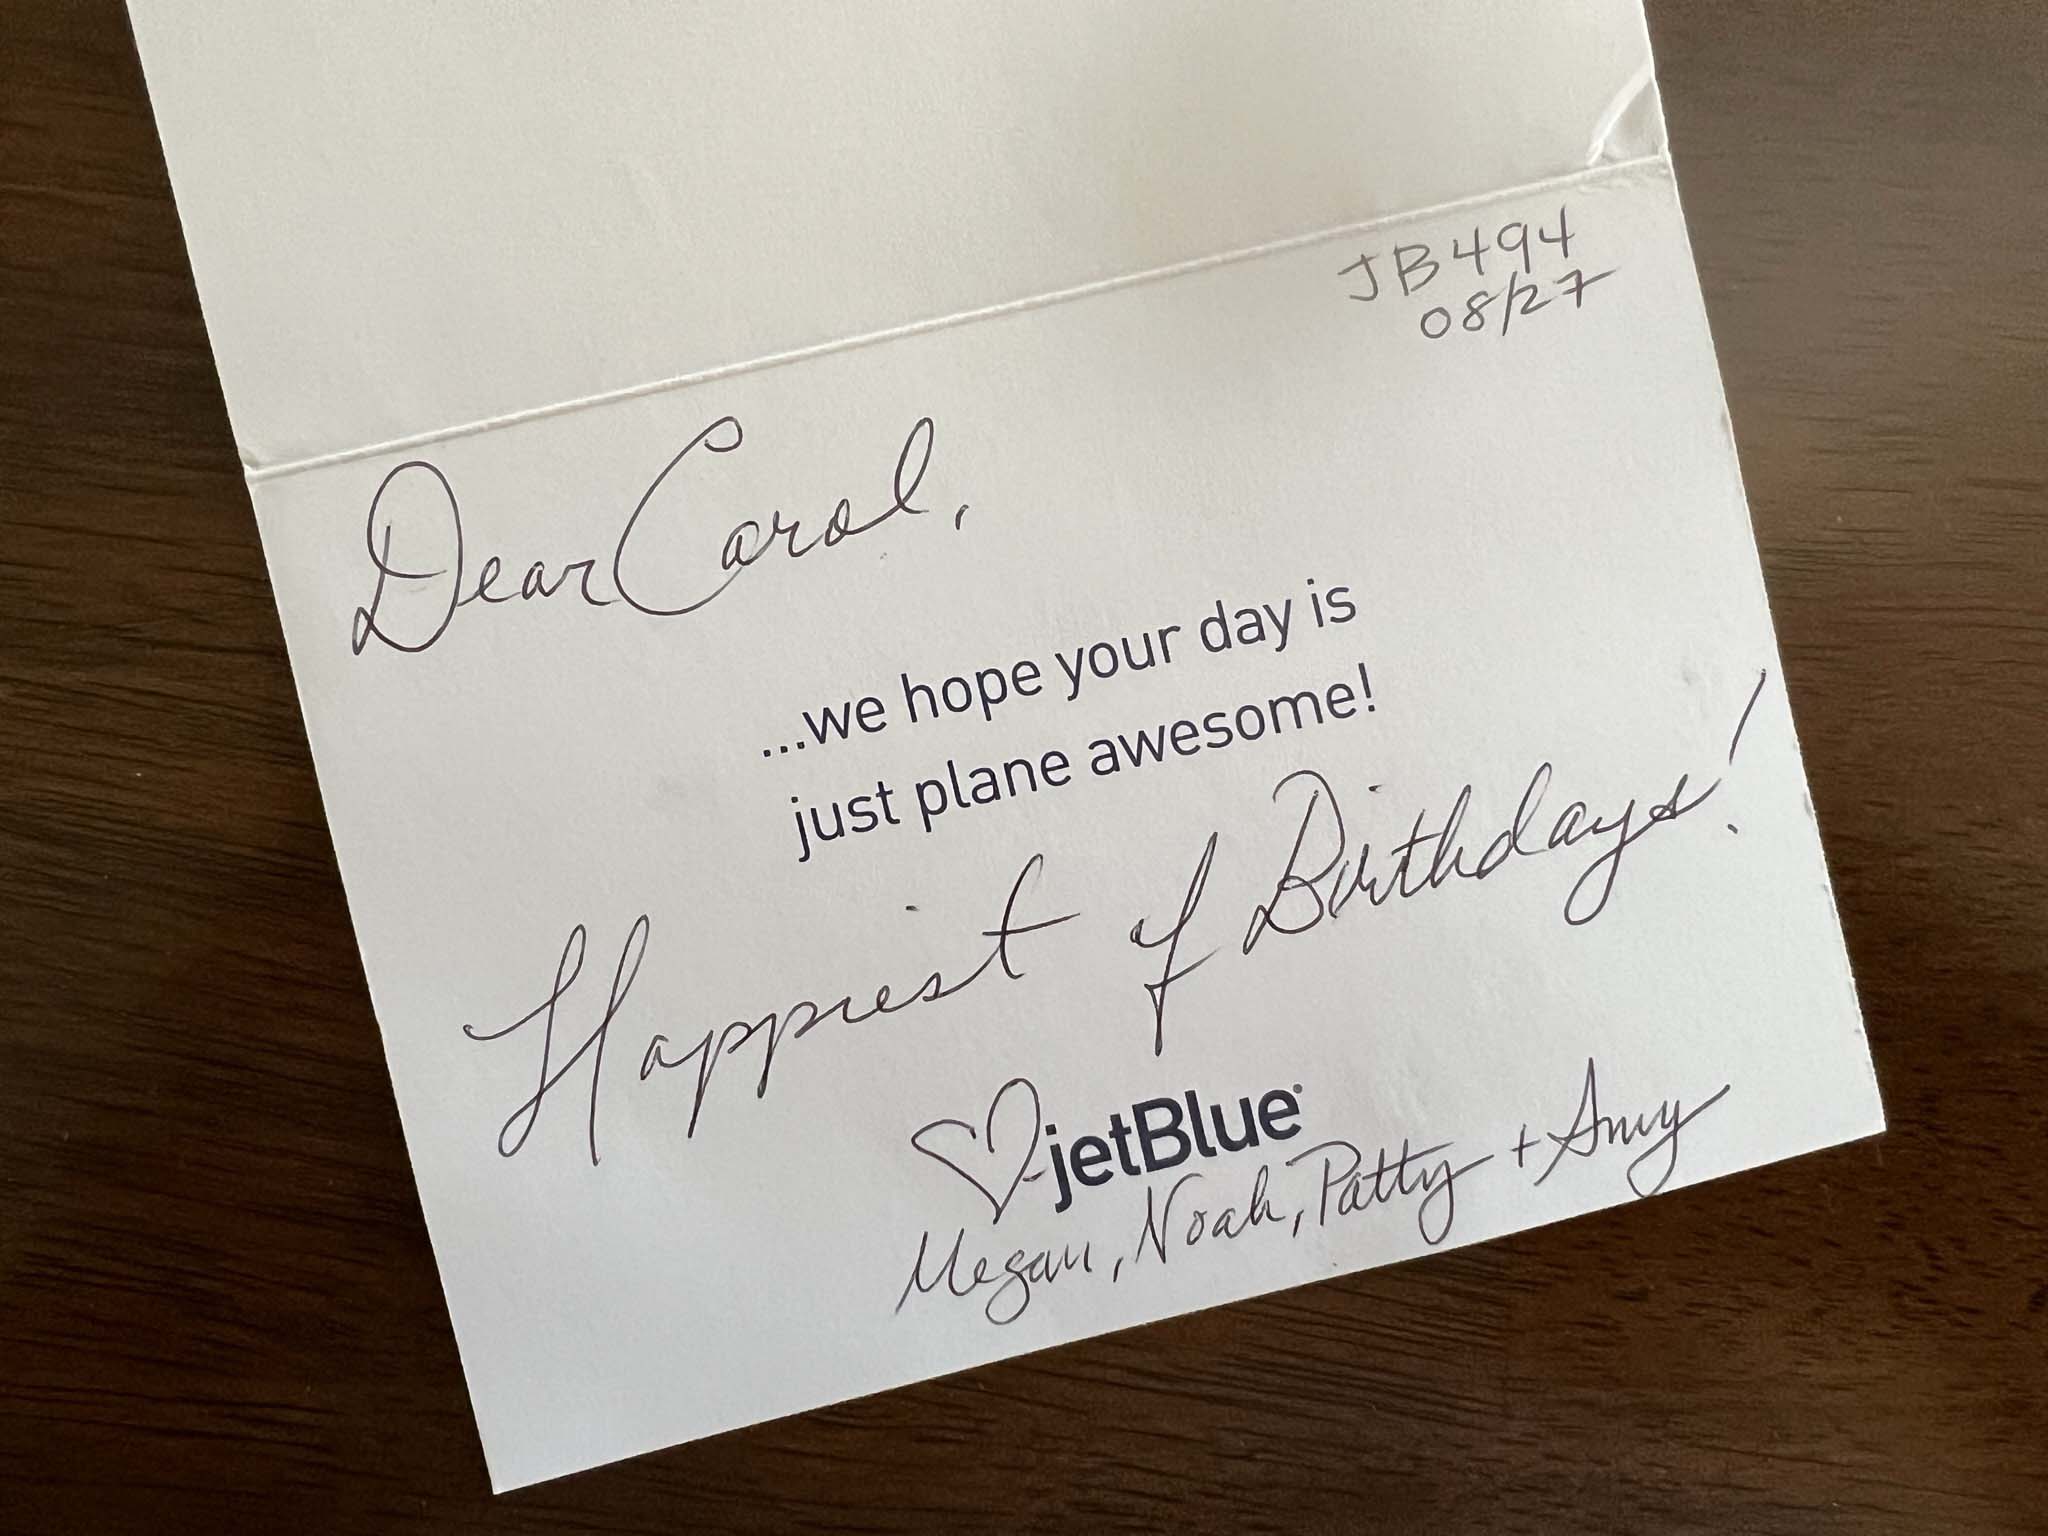 JB494
08/27
Dear Carol,
...we hope your day is
just plane awesome!
Happiest of Birthdays!
jetBlue
Megan, Noah, Patty + Amy